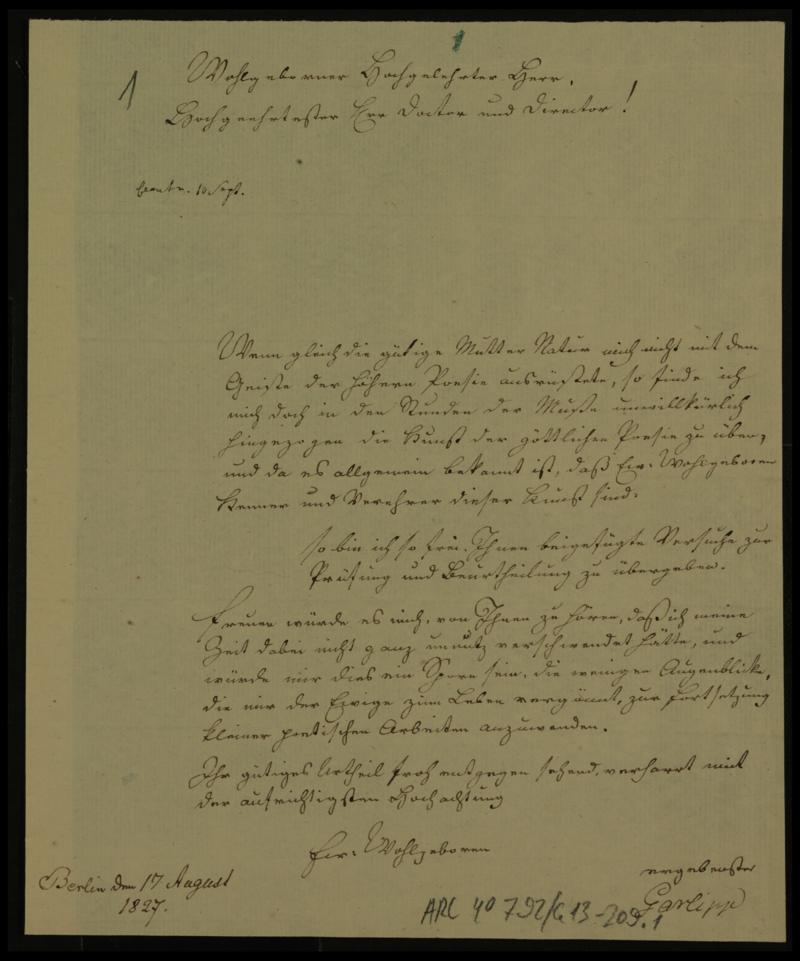 1
1
Wohlgeborner Hochgelehrter Herr,
Hochgeehrtester Herr Doctor und Director!
10 Sept.
Wenn gleich die gütige Mutter Natur mich nicht mit dem
Geiste der höhern Poesie ausrüstete, so finde ich
mich doch in den Stunden der Muße unwillkürlich
hingezogen die Kunst der göttlichen Poesie zu üben,
und da es allgemein bekannt ist, daß Ew. Wohlgeboren
Kenner und Verehrer dieser Kunst sind.
so bin ich so frei, Ihnen beigefügte Versuche zur
Prüfung und Beurtheilung zu übergeben.
Freuen würde es mich, von Ihnen zu hören, daß ich meine
Zeit dabei nicht ganz unnütz verschwendet hätte, und
würde mir dies ein Sporn sein, die wenigen Augenblicke,
die mir der Ewige zum Leben vergönnt, zur Fortsetzung
kleiner poetischen Arbeiten anzuwenden.
Ihr gütiges Urtheil froh entgegen sehend, verharrt mit
der aufrichtigsten Hochachtung
Ew. Wohlgeboren
ergebenster
Garlipp
Berlin den 17 August
1827.
ARC 40 792/G 13-209.1